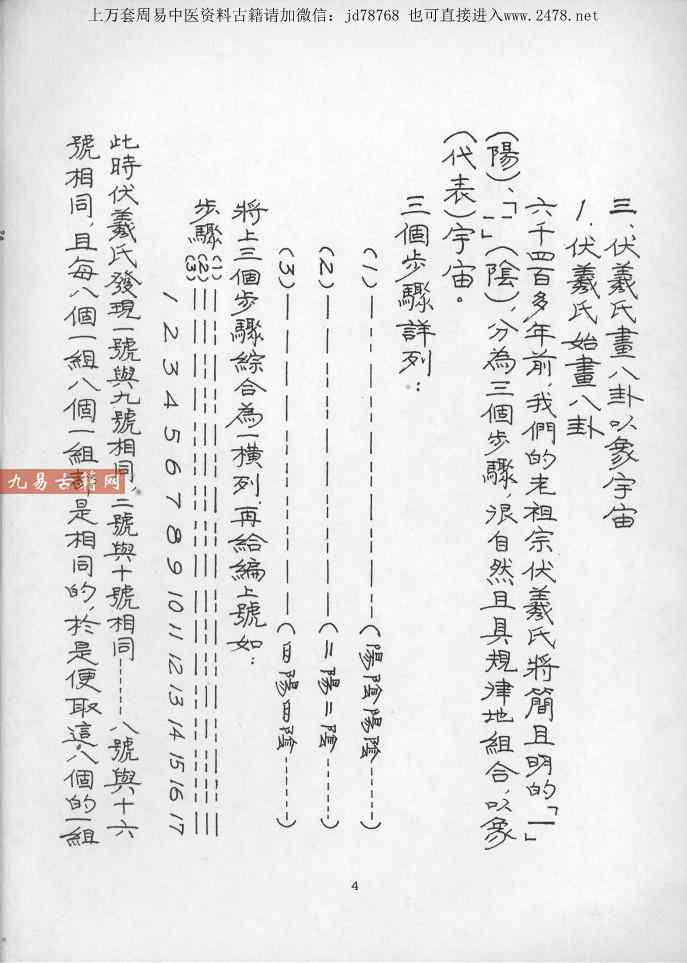 上万套周易中医资料古籍请加微信：jd78768 也可直接进入www.2478.net
三、伏羲氏畫八卦以象宇宙
1. 伏羲氏始畫八卦
六千四百多年前，我們的老祖宗伏羲氏將簡且明的「—」
（陽）、「--」（陰），分為三個步驟，很自然且具規律地組合，以象
（代表）宇宙。
三個步驟詳列：
(1)（陽陰陽陰……）
(2)（二陽二陰……）
(3)（四陽四陰……）
將上三個步驟綜合為一橫列，再給編上號如：
步驟(1)
(2)
(3)
1 2 3 4 5 6 7 8 9 10 11 12 13 14 15 16 17
此時伏羲氏發現一號與九號相同，二號與十號相同……八號與十六
號相同，且每八個一組八個一組都是相同的，於是便取這八個的一組
九易古籍网
4